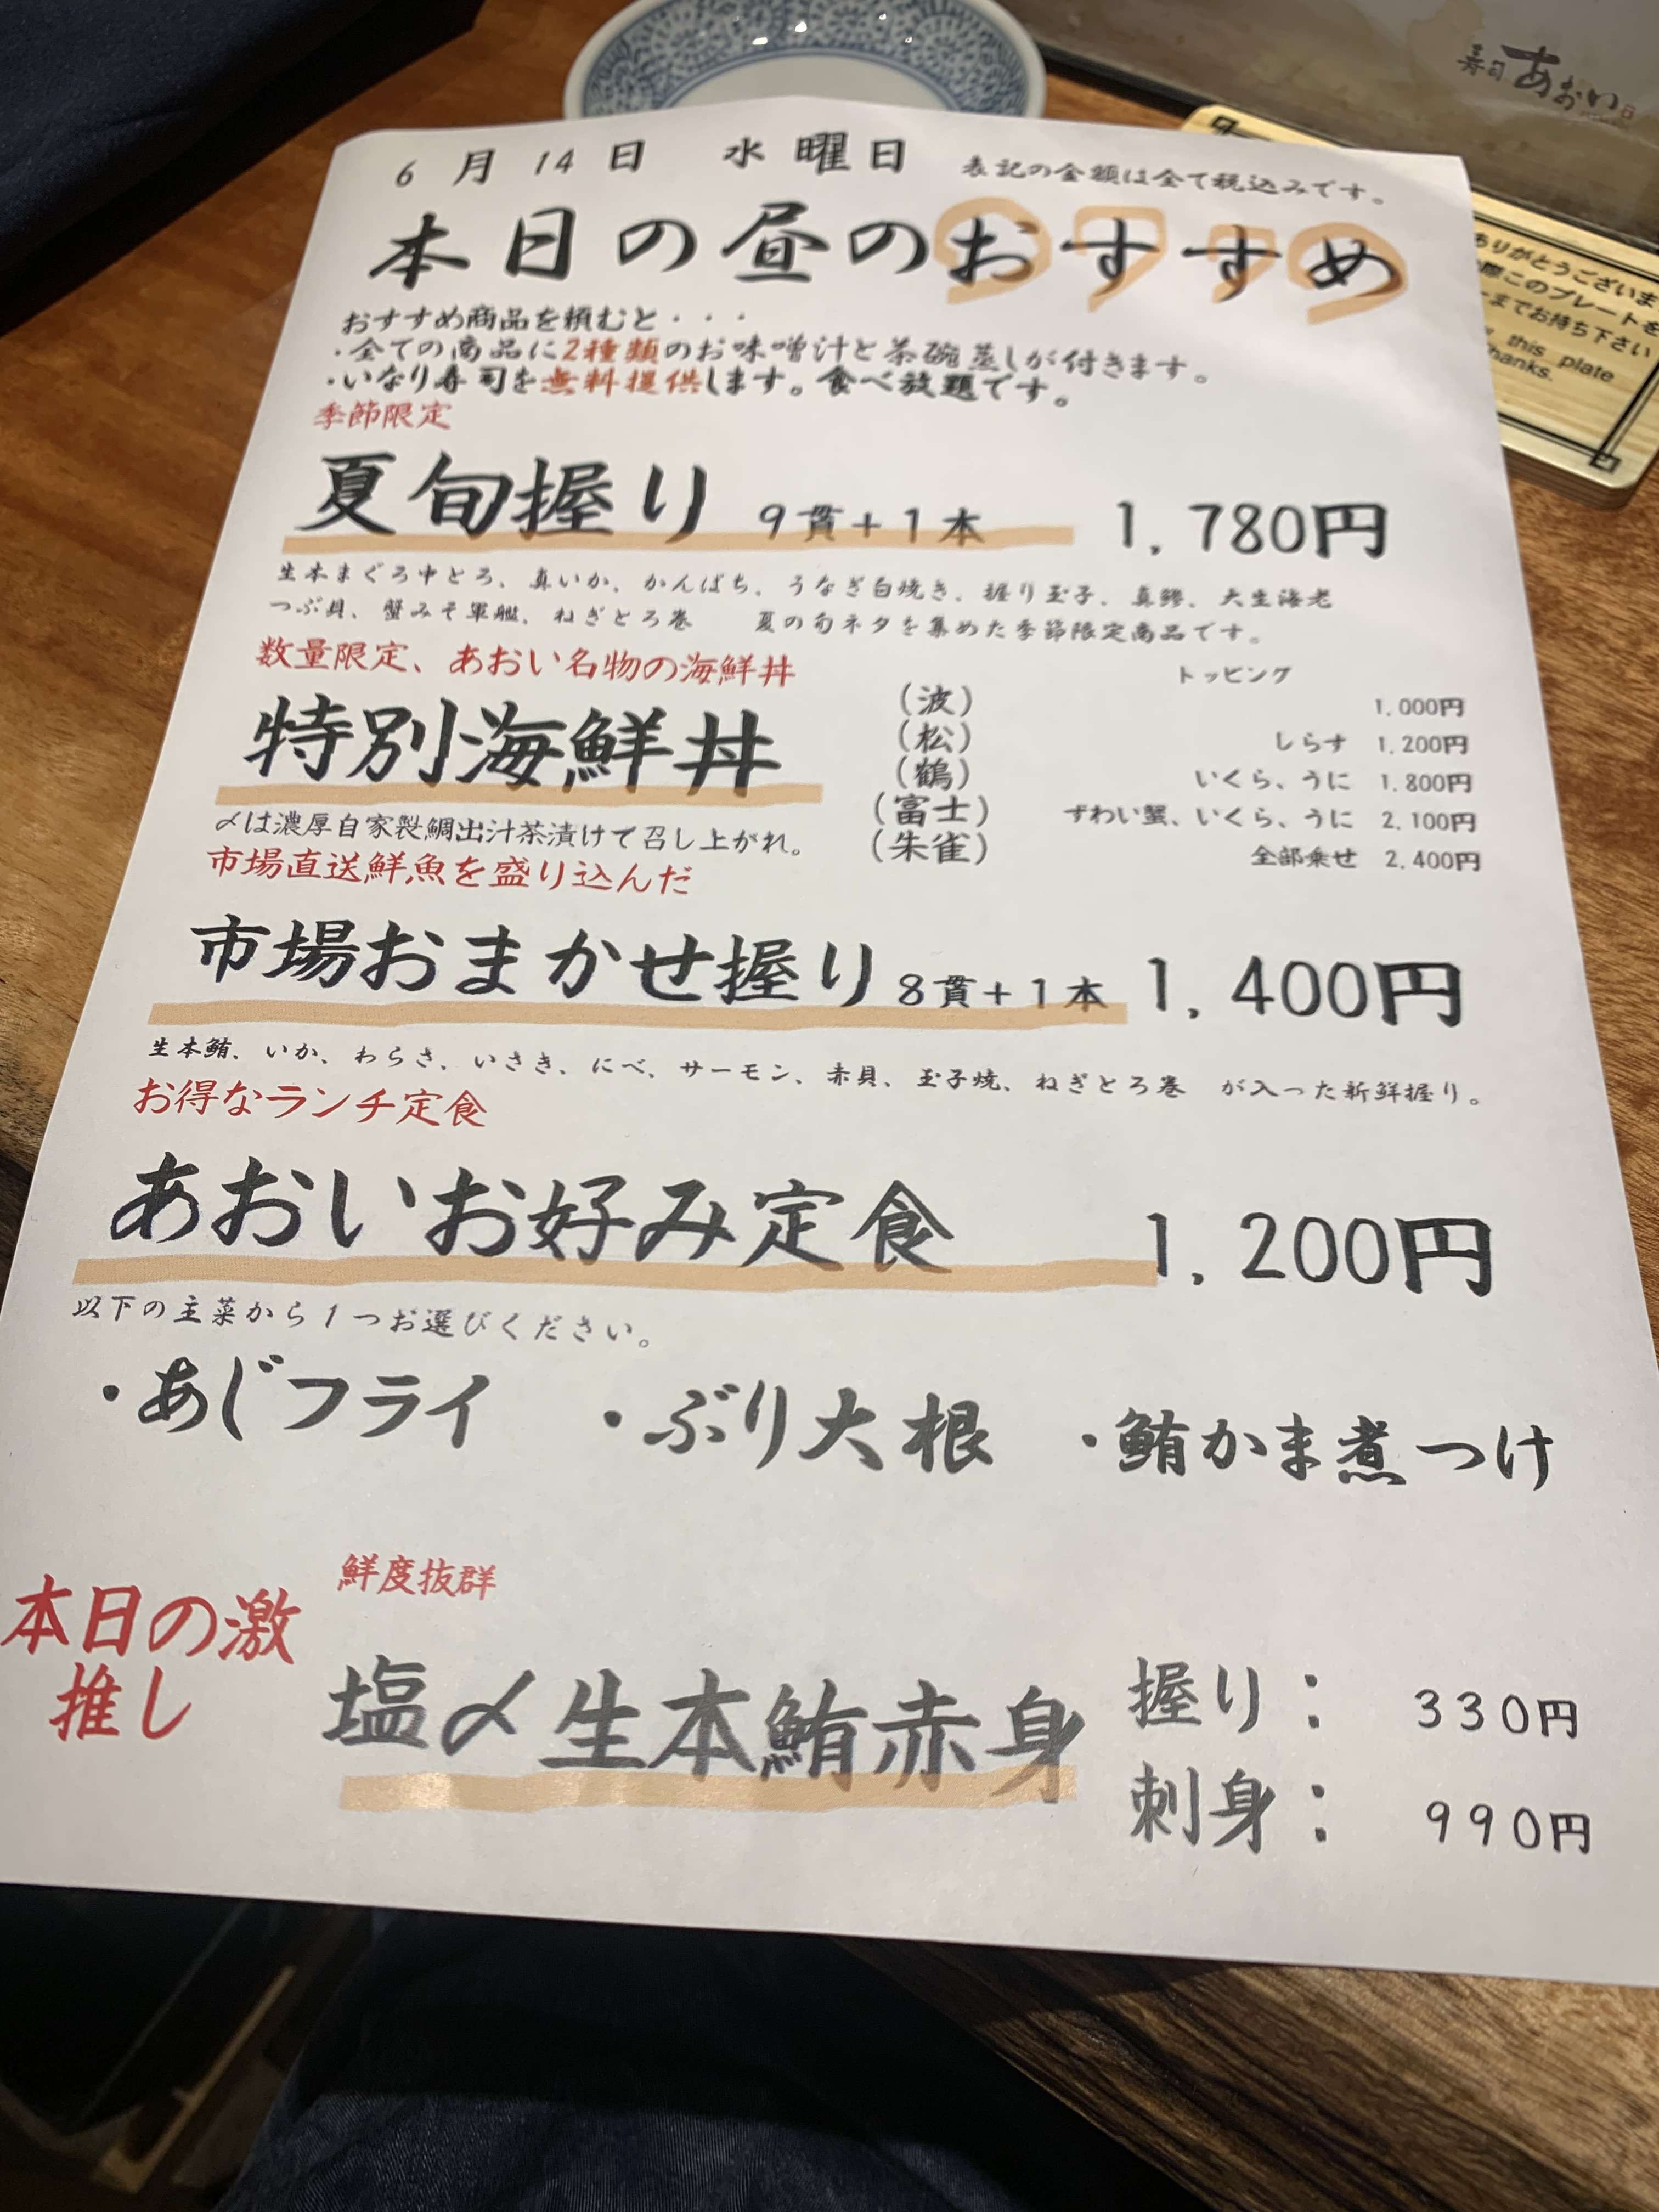 寿司 あおい
6月14日 水曜日 表記の金額は全て税込みです。
本日の昼のおすすめ
おすすめ商品を頼むと・・・
・全ての商品に2種類のお味噌汁と茶碗蒸しが付きます。
・いなり寿司を無料提供します。食べ放題です。
季節限定
夏旬握り 9貫+1本 1,780円
生本まぐろ中とろ、真いか、かんぱち、うなぎ白焼き、握り玉子、真鯵、大生海老
つぶ貝、蟹みそ軍艦、ねぎとろ巻 夏の旬ネタを集めた季節限定商品です。
数量限定、あおい名物の海鮮丼
特別海鮮丼
トッピング
(波) 1,000円
(松) しらす 1,200円
(鶴) いくら、うに 1,800円
(富士) ずわい蟹、いくら、うに 2,100円
(朱雀) 全部乗せ 2,400円
〆は濃厚自家製鯛出汁茶漬けで召し上がれ。
市場直送鮮魚を盛り込んだ
市場おまかせ握り 8貫+1本 1,400円
生本鮪、いか、わらさ、いさき、にべ、サーモン、赤貝、玉子焼、ねぎとろ巻 が入った新鮮握り。
お得なランチ定食
あおいお好み定食 1,200円
以下の主菜から1つお選びください。
・あじフライ ・ぶり大根 ・鮪かま煮つけ
本日の激
推し
鮮度抜群
塩〆生本鮪赤身
握り: 330円
刺身: 990円
りがとうございま
際このプレートを
までお持ち下さい
this plate
hanks.